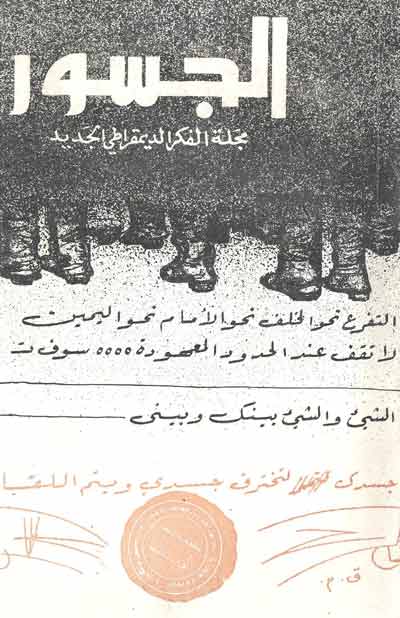 الجسور
مجلة الفكر الديمقراطي الجديد
التفرع نحو الخلف نحو الأمام نحو اليمين
لا تقف عند الحدود المعهودة ٥٥٥٥ سوف ت
الشيئ والشيئ بينك وبينى
جسدك لتخترق جسدي ويتم اللقا
ق . م .